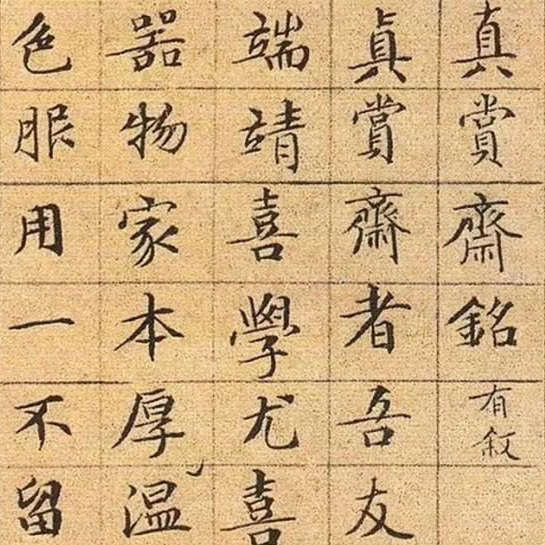 真賞齋銘有叙
眞賞齋者吾友
端靖喜學尤喜
器物家本厚温
色服用一不留